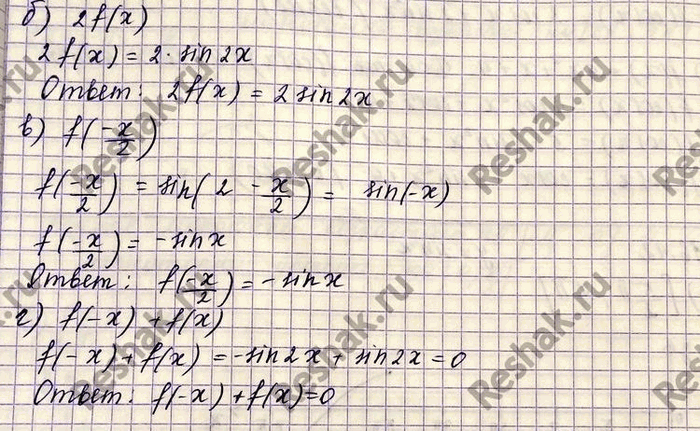 б) 2f(x)
2f(x) = 2 · sin 2x
Ответ: 2f(x) = 2 sin 2x
в) f(-x/2)
f(-x/2) = sin(2 - x/2) = sin(-x)
f(-x/2) = -sin x
Ответ: f(-x/2) = -sin x
г) f(-x) + f(x)
f(-x) + f(x) = -sin 2x + sin 2x = 0
Ответ: f(-x) + f(x) = 0
Reshak.ru
Reshak.ru
Reshak.ru
Reshak.ru
Reshak.ru
Reshak.ru